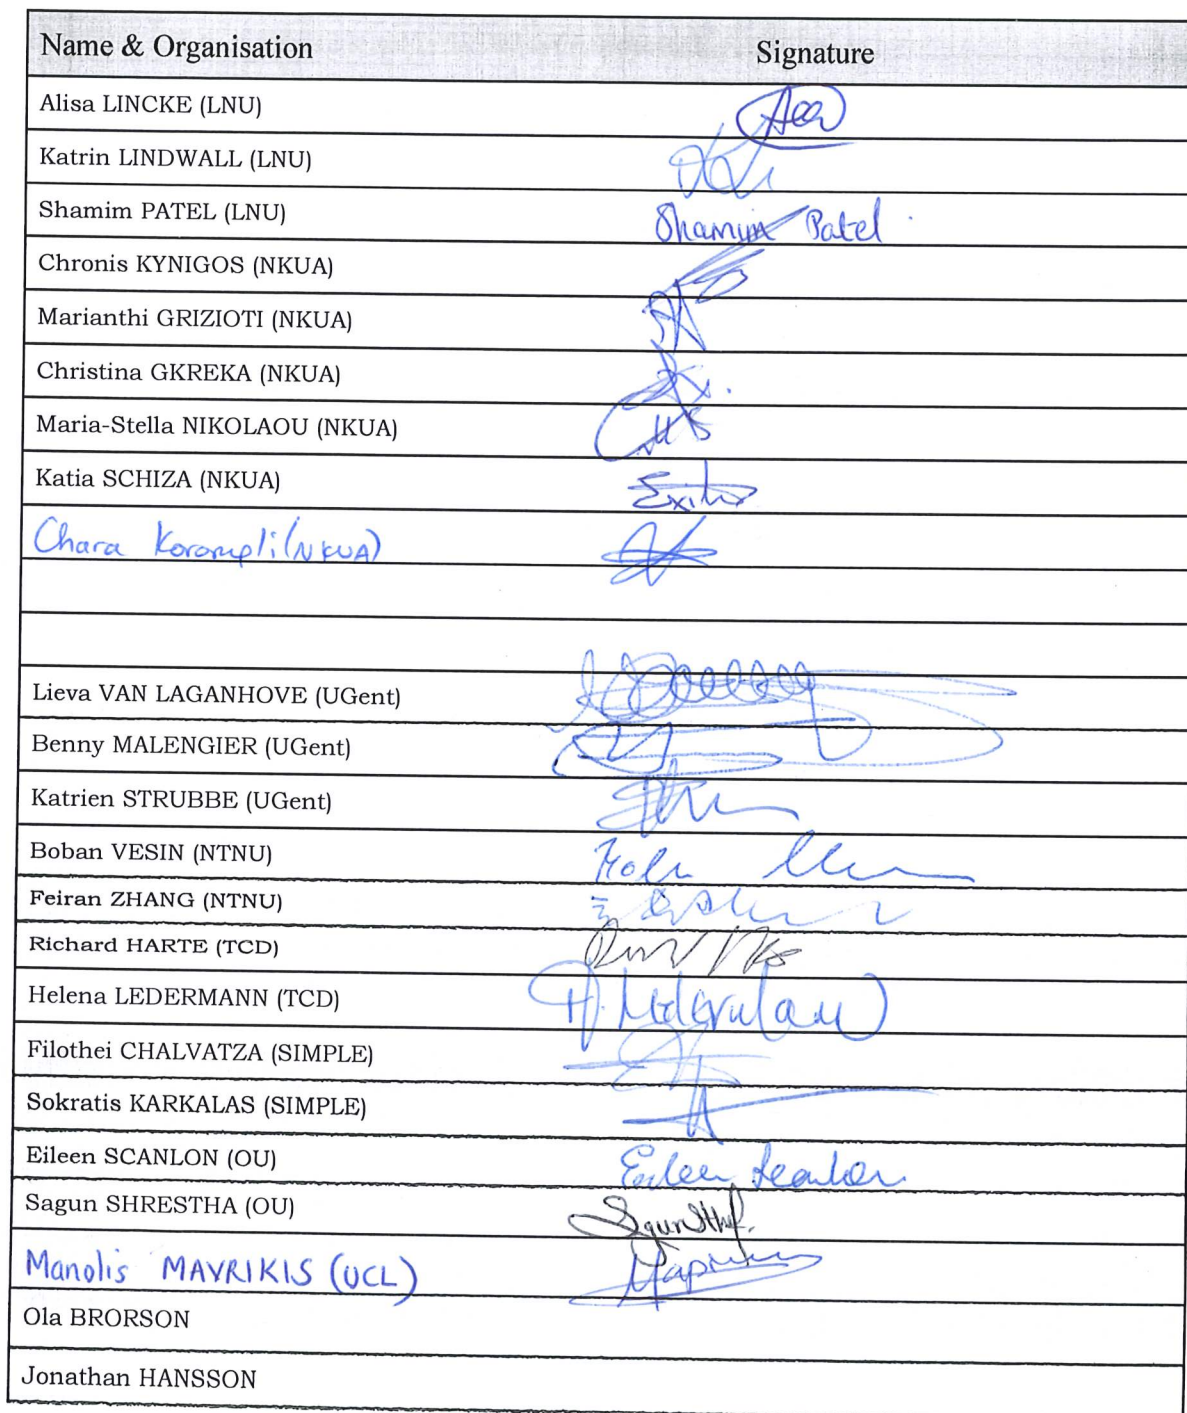 Name & Organisation Signature
Alisa LINCKE (LNU)
Katrin LINDWALL (LNU)
Shamim PATEL (LNU) Shamim Patel
Chronis KYNIGOS (NKUA)
Marianthi GRIZIOTI (NKUA)
Christina GKREKA (NKUA)
Maria-Stella NIKOLAOU (NKUA)
Katia SCHIZA (NKUA)
Chara Korompli (NKUA)
Lieva VAN LAGANHOVE (UGent)
Benny MALENGIER (UGent)
Katrien STRUBBE (UGent)
Boban VESIN (NTNU)
Feiran ZHANG (NTNU)
Richard HARTE (TCD)
Helena LEDERMANN (TCD) H. Ledermann
Filothei CHALVATZA (SIMPLE)
Sokratis KARKALAS (SIMPLE)
Eileen SCANLON (OU) Eileen Scanlon
Sagun SHRESTHA (OU)
Manolis MAVRIKIS (UCL)
Ola BRORSON
Jonathan HANSSON